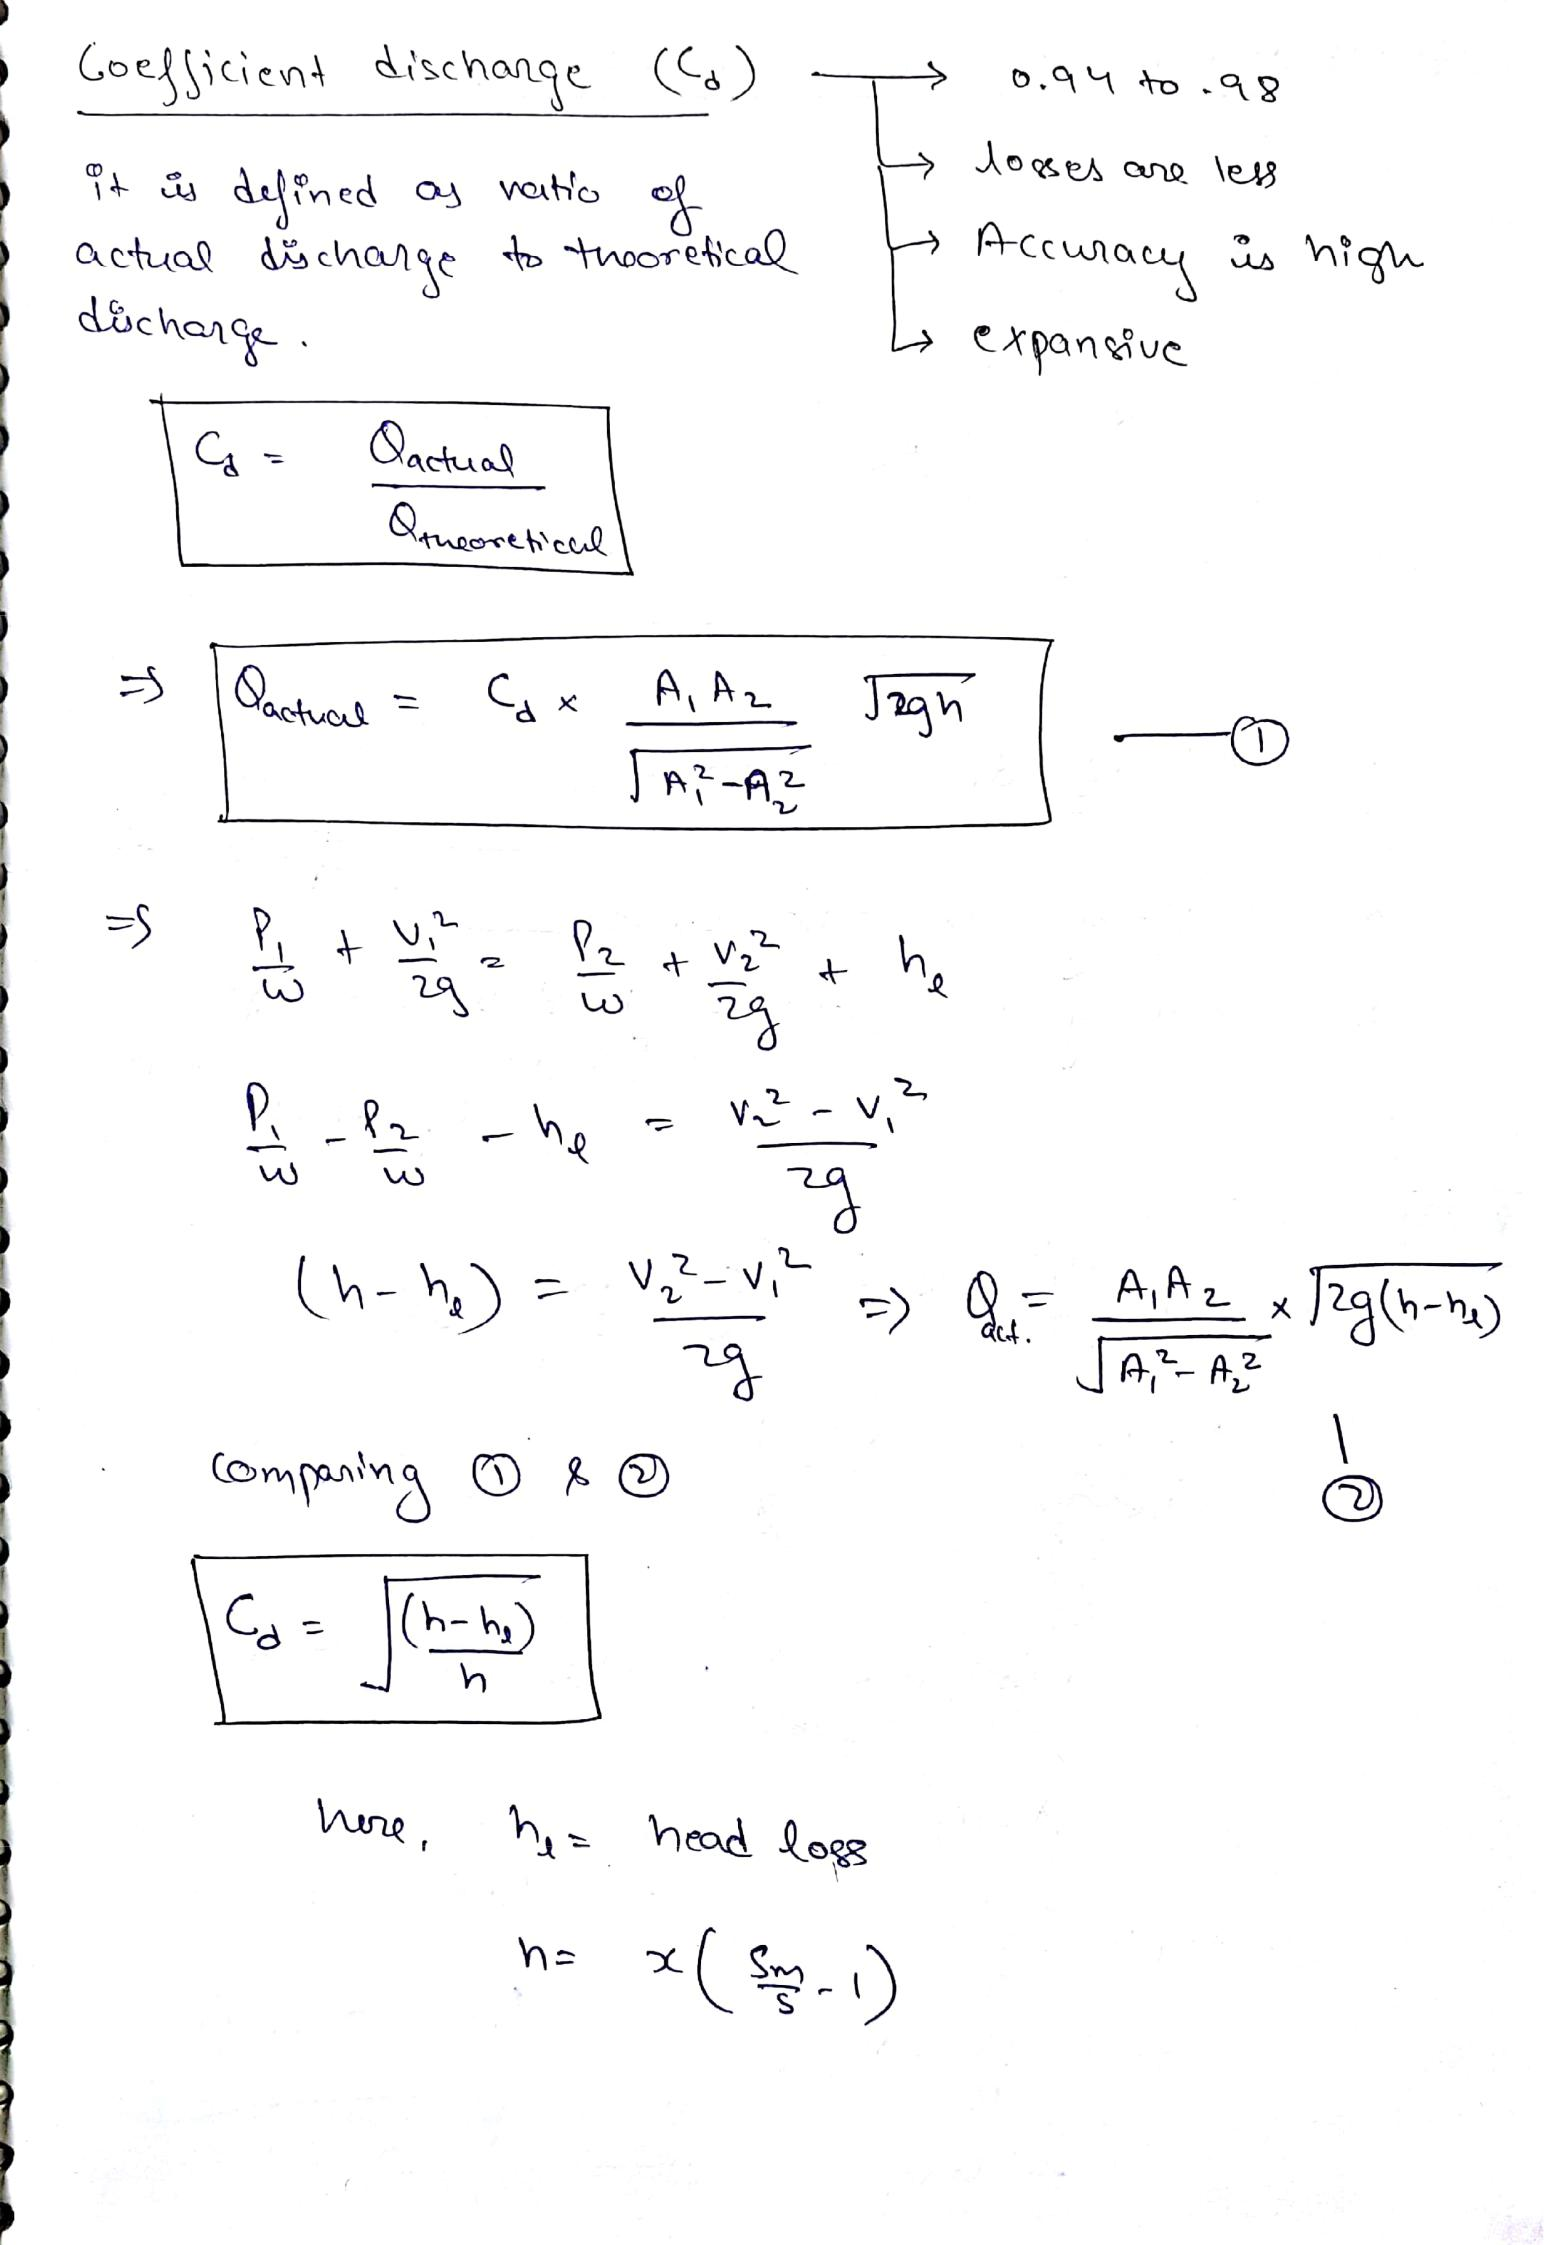 Coefficient discharge (Cd) → 0.94 to .98
↳ losses are less
it is defined as ratio of
actual discharge to thooretical
↳ Accuracy is high
discharge.
↳ expansive
Cd = Qactual / Qtheoretical
⇒ Qactual = Cd × A₁A₂ / √(A₁²-A₂²) √2gh — ①
⇒ P₁/w + V₁²/2g = P₂/w + V₂²/2g + hl
P₁/w - P₂/w - hl = V₂² - V₁² / 2g
(h-hl) = V₂²-V₁² / 2g ⇒ Qact. = A₁A₂ / √(A₁²-A₂²) × √2g(h-hl)
| ②
comparing ① & ②
Cd = √((h-hl) / h)
here, hl = head loss
h = x(Sm/S - 1)